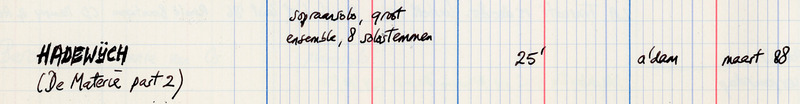 sopraansolo, groot
ensemble, 8 solostemmen
HADEWĲCH 25' a'dam maart 88
(De Materie part 2)